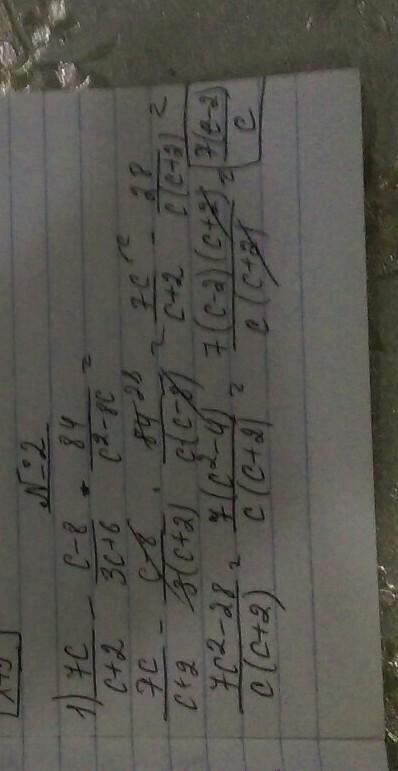 №2
1) 7c/(c+2) − (c−8)/(3c+6) · 84/(c²−8c) =
7c/(c+2) − (c−8)/(3(c+2)) · 84 28/(c(c−8)) = 7c/(c+2) − 28/(c(c+2)) =
(7c²−28)/(c(c+2)) = 7(c²−4)/(c(c+2)) = 7(c−2)(c+2)/(c(c+2)) = 7(c−2)/c